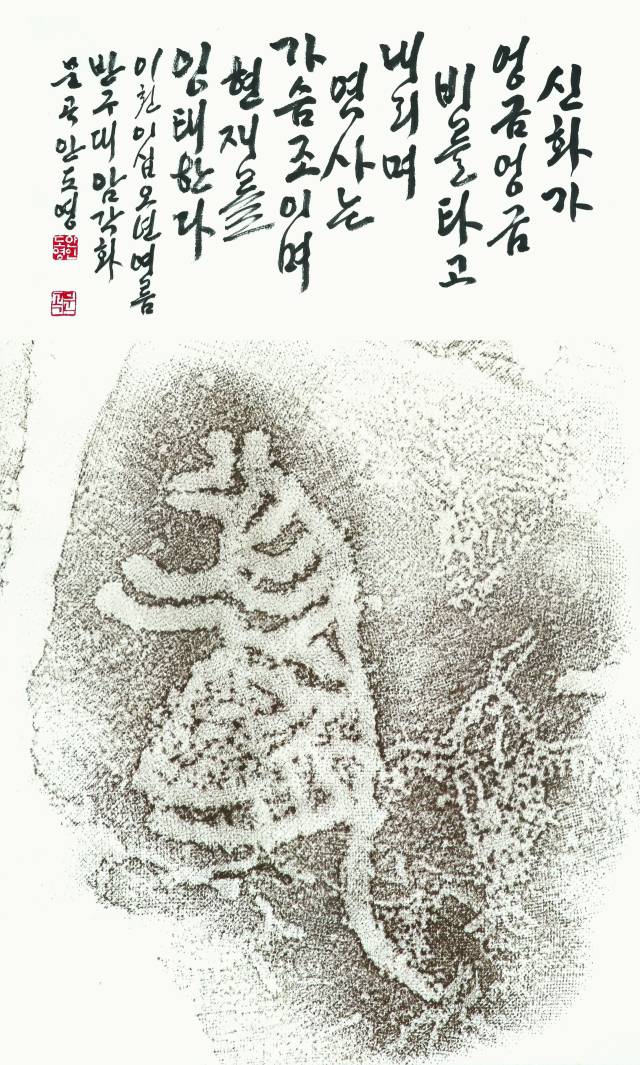 신화가
엉금엉금
비를타고
내리며
역사는
가슴조이며
현재를
잉태한다
이천이십오년여름
반구대암각화
문곡안도영